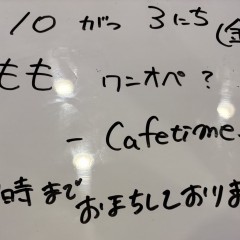 10 がつ 3にち (金
もも ワニオペ?
- Cafetime.
時まで おまちしておりま